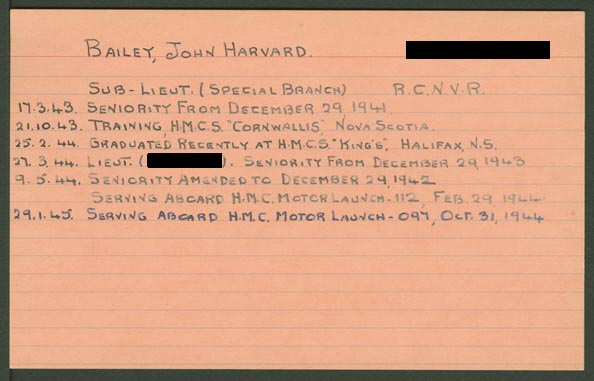 BAILEY, JOHN HARVARD.
SUB-LIEUT. (SPECIAL BRANCH) R.C.N.V.R.
17.3.43. SENIORITY FROM DECEMBER 29, 1941.
21.10.43. TRAINING, H.M.C.S. "CORNWALLIS", NOVA SCOTIA.
25.2.44. GRADUATED RECENTLY AT H.M.C.S. "KING'S", HALIFAX, N.S.
27.3.44. LIEUT. ( ). SENIORITY FROM DECEMBER 29, 1943
9.5.44. SENIORITY AMENDED TO DECEMBER 29, 1942
SERVING ABOARD H.M.C. MOTOR LAUNCH-112, FEB. 29, 1944.
29.1.45. SERVING ABOARD H.M.C. MOTOR LAUNCH-097, OCT. 31, 1944